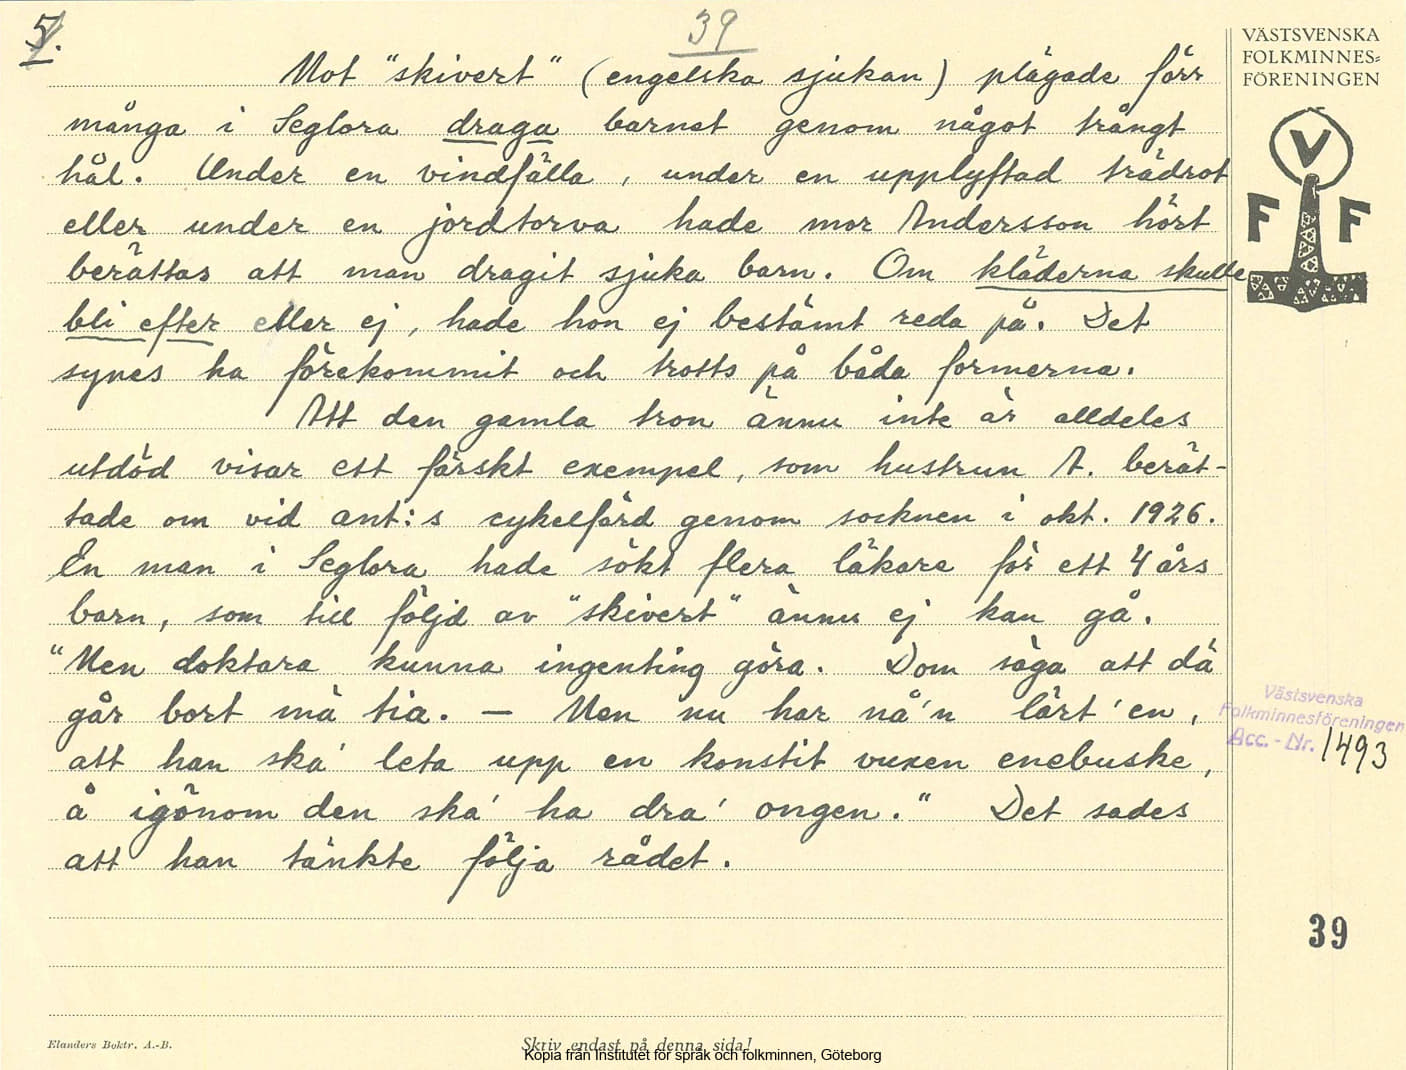 5.
39
VÄSTSVENSKA
FOLKMINNES=
FÖRENINGEN
V
F F
Mot "skivert" (engelska sjukan) plägade förr
många i Seglora draga barnet genom något trångt
hål. Under en vindfälla, under en upplyftad trädrot
eller under en jordtorva hade mor Andersson hört
berättas att man dragit sjuka barn. Om kläderna skulle
bli efter eller ej, hade hon ej bestämt reda på. Det
synes ha förekommit och trotts på båda formerna.
Att den gamla tron ännu inte är alldeles
utdöd visar ett färskt exempel, som hustrun A. berät-
tade om vid ant:s cykelfärd genom socknen i okt. 1926.
En man i Seglora hade sökt flera läkare för ett 4 års
barn, som till följd av "skivert" ännu ej kan gå.
"Men doktara kunna ingenting göra. Dom säga att dä
går bort mä tia. — Men nu har nå'n lärt'en,
att han ska' leta upp en konstit vuxen enebuske,
å igönom den ska' ha dra' ongen." Det sades
att han tänkte följa rådet.
Västsvenska
Folkminnesföreningen
Acc.-Nr. 1493
39
Elanders Boktr. A.-B.
Skriv endast på denna sida!
Kopia från Institutet för språk och folkminnen, Göteborg